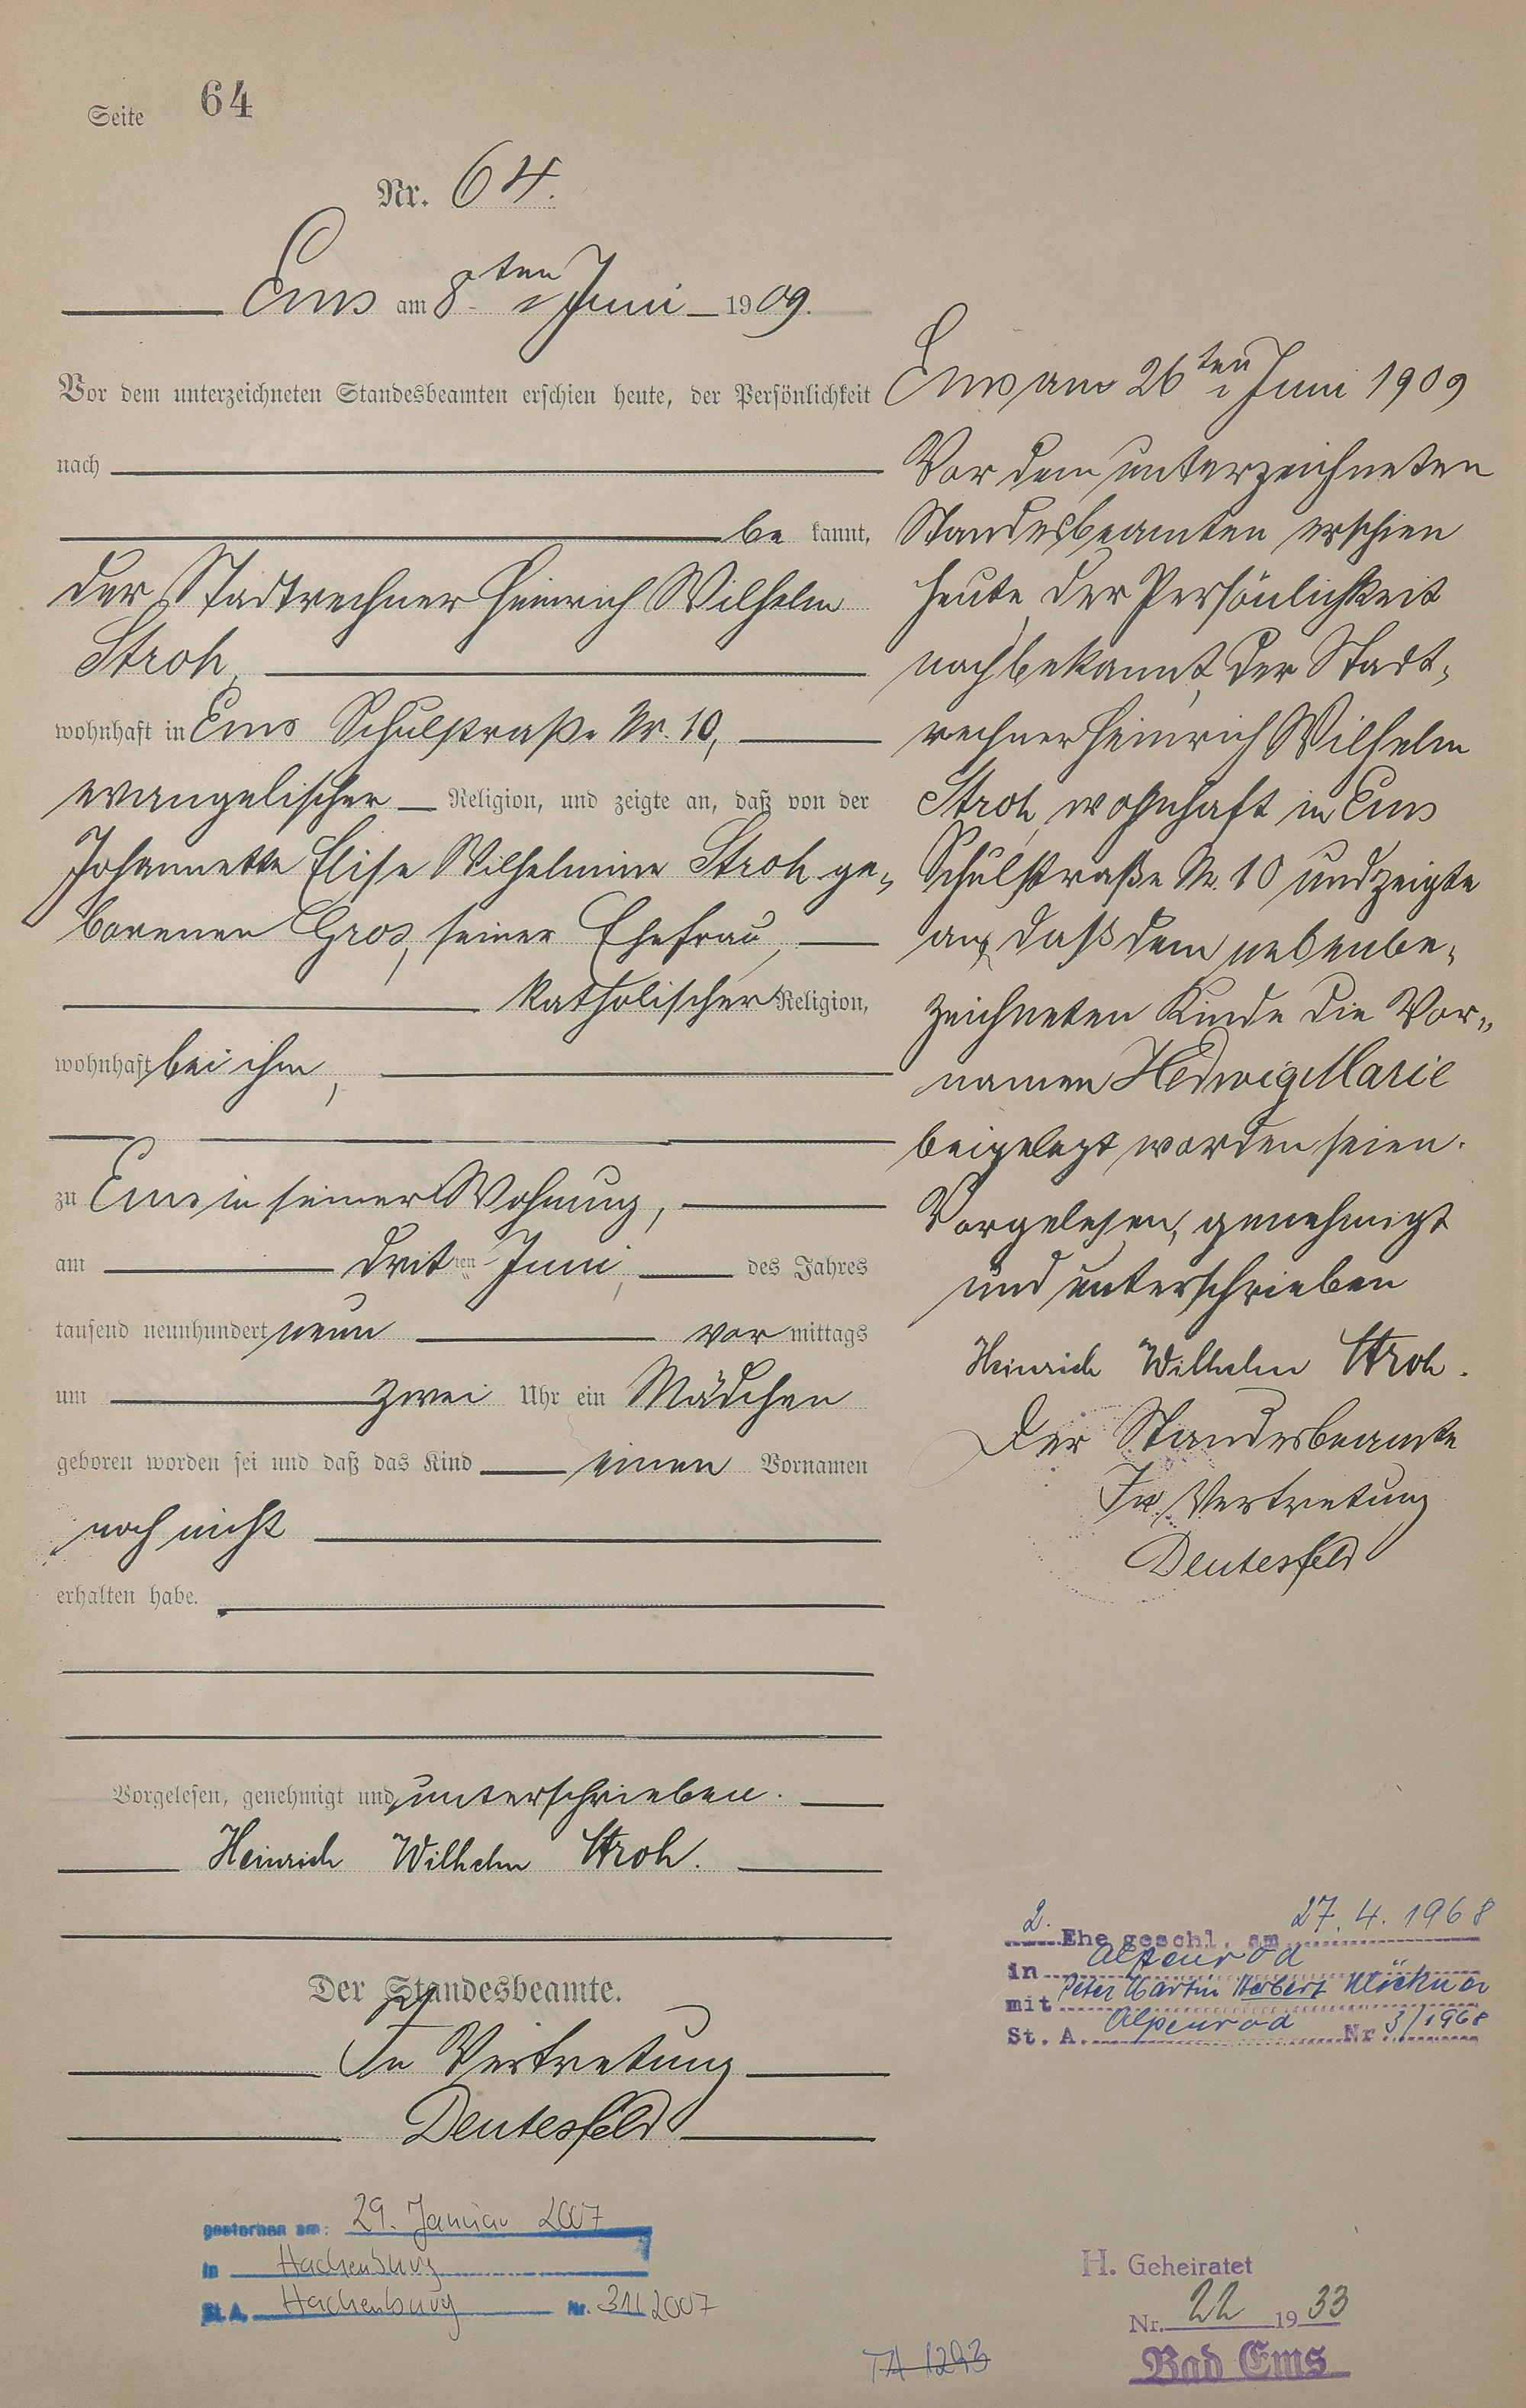 Seite 64
Nr. 64.
Ems am 8ten Juni 1909.
Vor dem unterzeichneten Standesbeamten erschien heute, der Persönlichkeit
nach
be kannt,
der Stadtrechner Heinrich Wilhelm
Stroh,
wohnhaft in Ems Schulstraße Nr. 10,
evangelischer Religion, und zeigte an, daß von der
Johannette Elise Wilhelmine Stroh ge-
borenen Gros, seiner Ehefrau,
katholischer Religion,
wohnhaft bei ihm,
zu Ems in seiner Wohnung,
am dritten Juni, des Jahres
tausend neunhundert neun vor mittags
um zwei Uhr ein Mädchen
geboren worden sei und daß das Kind einen Vornamen
noch nicht
erhalten habe.
Vorgelesen, genehmigt und unterschrieben.
Heinrich Wilhelm Stroh.
Der Standesbeamte.
In Vertretung
Deutesfeld
gestorben am: 29. Januar 2007
in Hachenburg
St. A. Hachenburg Nr. 31/2007
Ems am 26ten Juni 1909
Vor dem unterzeichneten
Standesbeamten erschien
heute, der Persönlichkeit
nach bekannt, der Stadt-
rechner Heinrich Wilhelm
Stroh, wohnhaft in Ems
Schulstraße Nr. 10 und zeigte
an, daß dem nebenbe-
zeichneten Kinde die Vor-
namen Hedwig Marie
beigelegt worden seien.
Vorgelesen, genehmigt
und unterschrieben
Heinrich Wilhelm Stroh.
Der Standesbeamte
In Vertretung
Deutesfeld
2. Ehe geschl. am 27.4.1968
in Alpenrod
mit Peter Martin Herbert Klöckner
St. A. Alpenrod Nr 3/1968
H. Geheiratet
Nr. 22 1933
Bad Ems
TA 1293